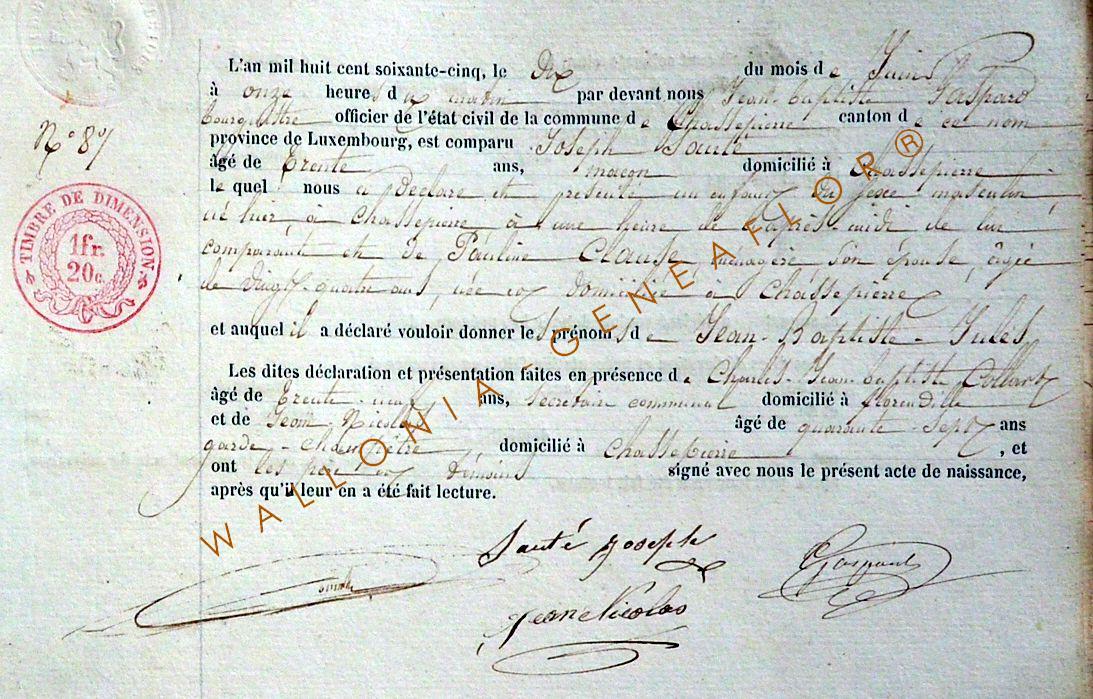 L'an mil huit cent soixante-cinq, le Dix du mois de Juin
à onze heures du matin par devant nous Jean-baptiste Gaspard
bourgmestre officier de l'état civil de la commune de Chassepierre canton de ce nom
province de Luxembourg, est comparu Joseph Sauté
âgé de Trente ans, maçon domicilié à Chassepierre
le quel nous a Déclaré et présenté un enfant du sexe masculin
né hier, à Chassepierre à une heure de l'après-midi de lui
comparant et de Pauline Clause ménagère son épouse, âgée
de vingt-quatre ans, née et domiciliée à Chassepierre
et auquel il a déclaré vouloir donner les prénoms de Jean-Baptiste-Jules
Les dites déclaration et présentation faites en présence de Charles-Jean-baptiste Collard
âgé de Trente-neuf ans, secrétaire communal domicilié à florenville
et de Jean Nicolas âgé de quarante-sept ans
garde-champêtre domicilié à Chassepierre, et
ont les père et témoins signé avec nous le présent acte de naissance,
après qu'il leur en a été fait lecture.
N° 8
TIMBRE DE DIMENSION
1 fr.
20 c.
WALLONIA-GENEAFLOR®
Sauté Joseph
Gaspard
Jean Nicolas